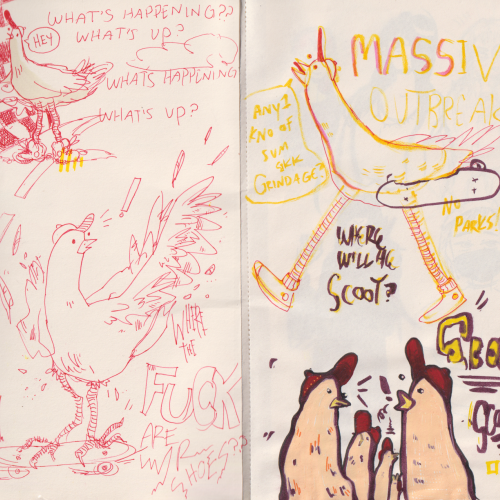 WHAT'S HAPPENING??
WHAT'S UP?
HEY
WHATS HAPPENING
WHAT'S UP?
WHERE
THE
FUCK
ARE
YOUR
SHOES???
MASSIV
OUTBREAK
ANY1
KNO OF
SUM
SKK
GRINDAGE?
NO
PARKS!
WHERE
WILL WE
SCOOT?